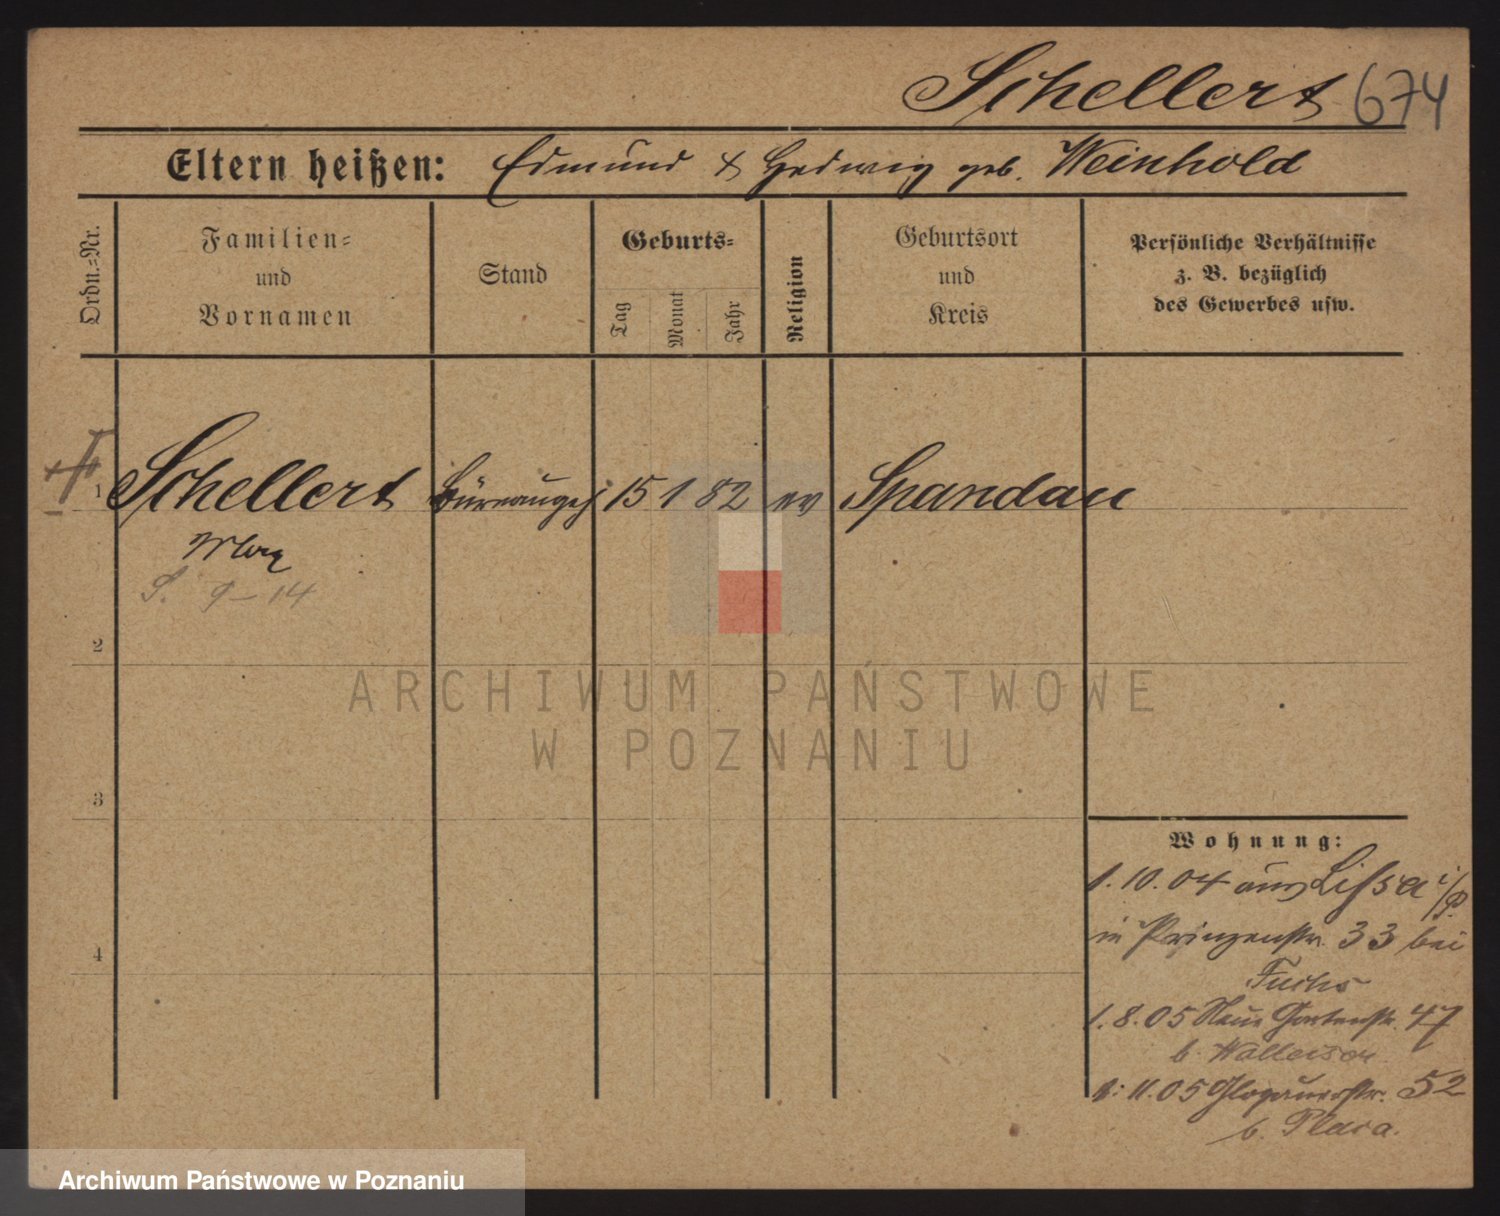 Schellert 674
Eltern heißen: Edmund & Hedwig geb. Weinhold
Ordn.=Nr.
Familien=
und
Vornamen
Stand
Geburts=
Tag
Monat
Jahr
Religion
Geburtsort
und
Kreis
Persönliche Verhältnisse
z. B. bezüglich
des Gewerbes usw.
1 Schellert Büreaugeh 15 1 82 ev Spandau
Max
S. 9-14
2
3
4
Wohnung:
1. 10. 04 aus Lissa i/P.
in Prinzenstr. 33 bei
Fuchs
1. 8. 05 Neue Gartenstr. 47
b.
11. 05 Glogauerstr. 52
b.
ARCHIWUM PAŃSTWOWE
W POZNANIU
Archiwum Państwowe w Poznaniu